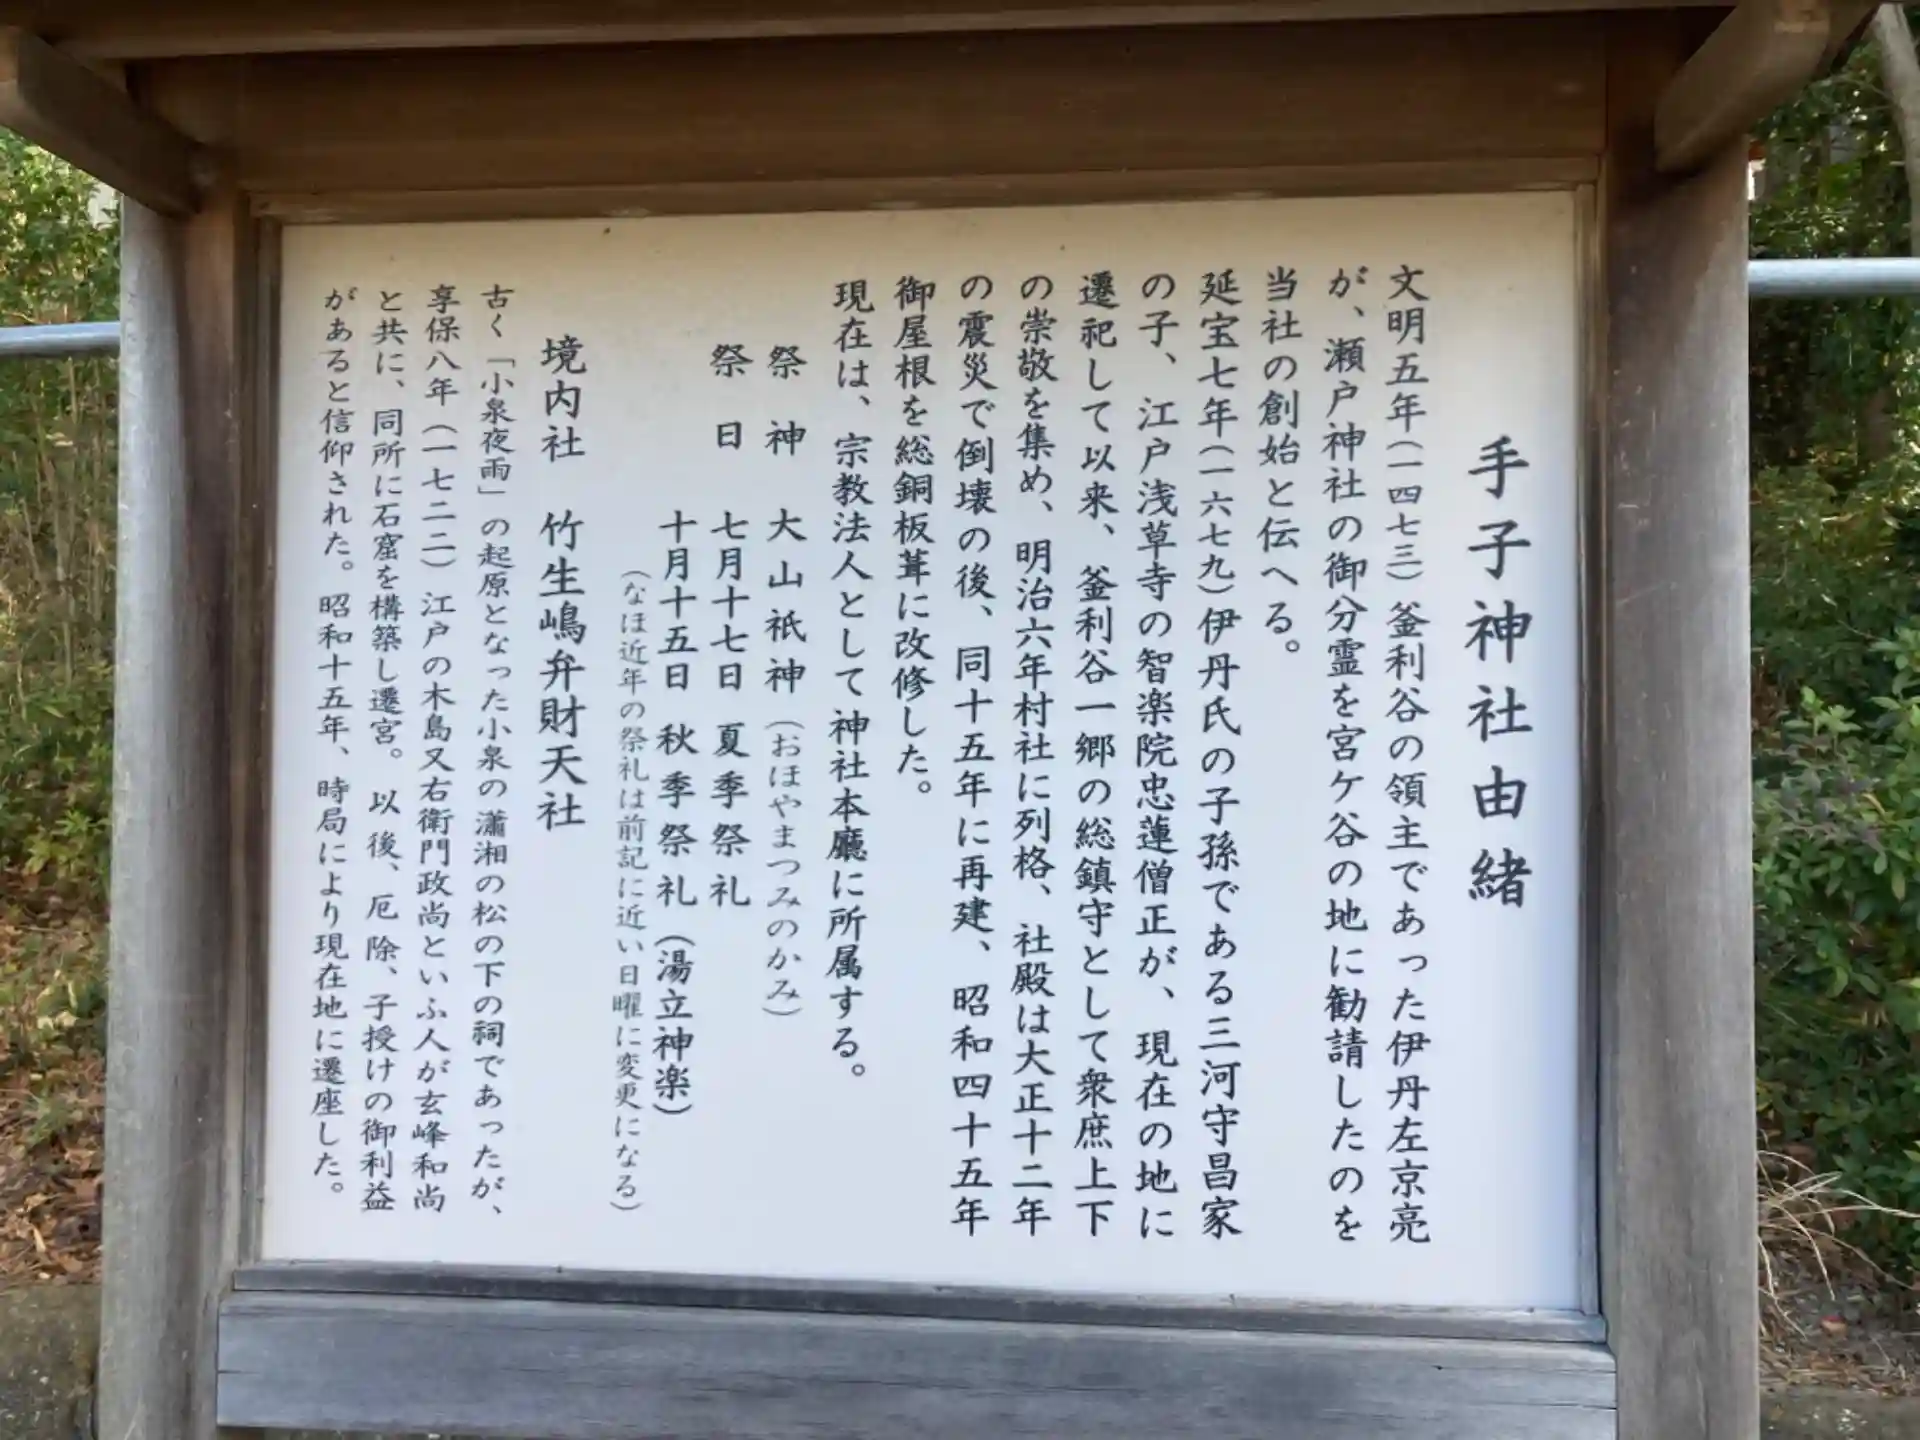 手子神社由緒
文明五年(一四七三)釜利谷の領主であった伊丹左京亮
が、瀬戸神社の御分霊を宮ケ谷の地に勧請したのを
当社の創始と伝へる。
延宝七年(一六七九)伊丹氏の子孫である三河守昌家
の子、江戸浅草寺の智楽院忠蓮僧正が、現在の地に
遷祀して以来、釜利谷一郷の総鎮守として衆庶上下
の崇敬を集め、明治六年村社に列格、社殿は大正十二年
の震災で倒壊の後、同十五年に再建、昭和四十五年
御屋根を総銅板葺に改修した。
現在は、宗教法人として神社本廳に所属する。
祭神 大山祇神(おほやまつみのかみ)
祭日 七月十七日 夏季祭礼
十月十五日 秋季祭礼(湯立神楽)
(なほ近年の祭礼は前記に近い日曜に変更になる)
境内社 竹生嶋弁財天社
古く「小泉夜雨」の起原となった小泉の瀟湘の松の下の祠であったが、
享保八年(一七二二)江戸の木島又右衛門政尚といふ人が玄峰和尚
と共に、同所に石窟を構築し遷宮。以後、厄除、子授けの御利益
があると信仰された。昭和十五年、時局により現在地に遷座した。